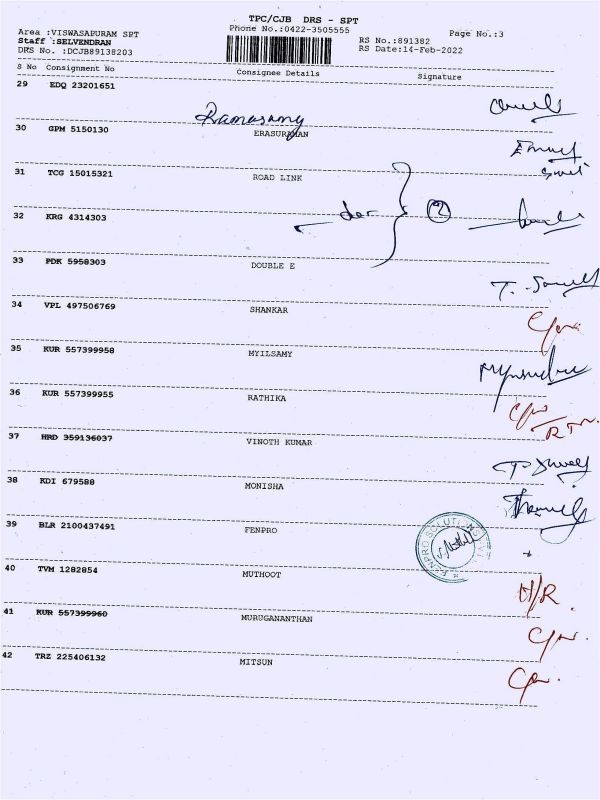 TPC/CJB DRS - SPT
Area :VISWASAPURAM SPT Phone No.:0422-3505555 Page No.:3
Staff :SELVENDRAN RS No.:891382
DRS No. :DCJB89138203 RS Date:14-Feb-2022
S No Consignment No Consignee Details Signature
29 EDQ 23201651
Ramasamy
30 GPM 5150130 ERASURAMAN
31 TCG 15015321 ROAD LINK
32 KRG 4314303
33 PDK 5958303 DOUBLE E
34 VPL 497506769 SHANKAR
35 KUR 557399958 MYILSAMY
36 KUR 557399955 RATHIKA
RTN
37 HRD 359136037 VINOTH KUMAR
38 KDI 679588 MONISHA
39 BLR 2100437491 FENPRO
FENPRO SOLUTIONS
40 TVM 1282854 MUTHOOT
41 KUR 557399960 MURUGANANTHAN
42 TRZ 225406132 MITSUN